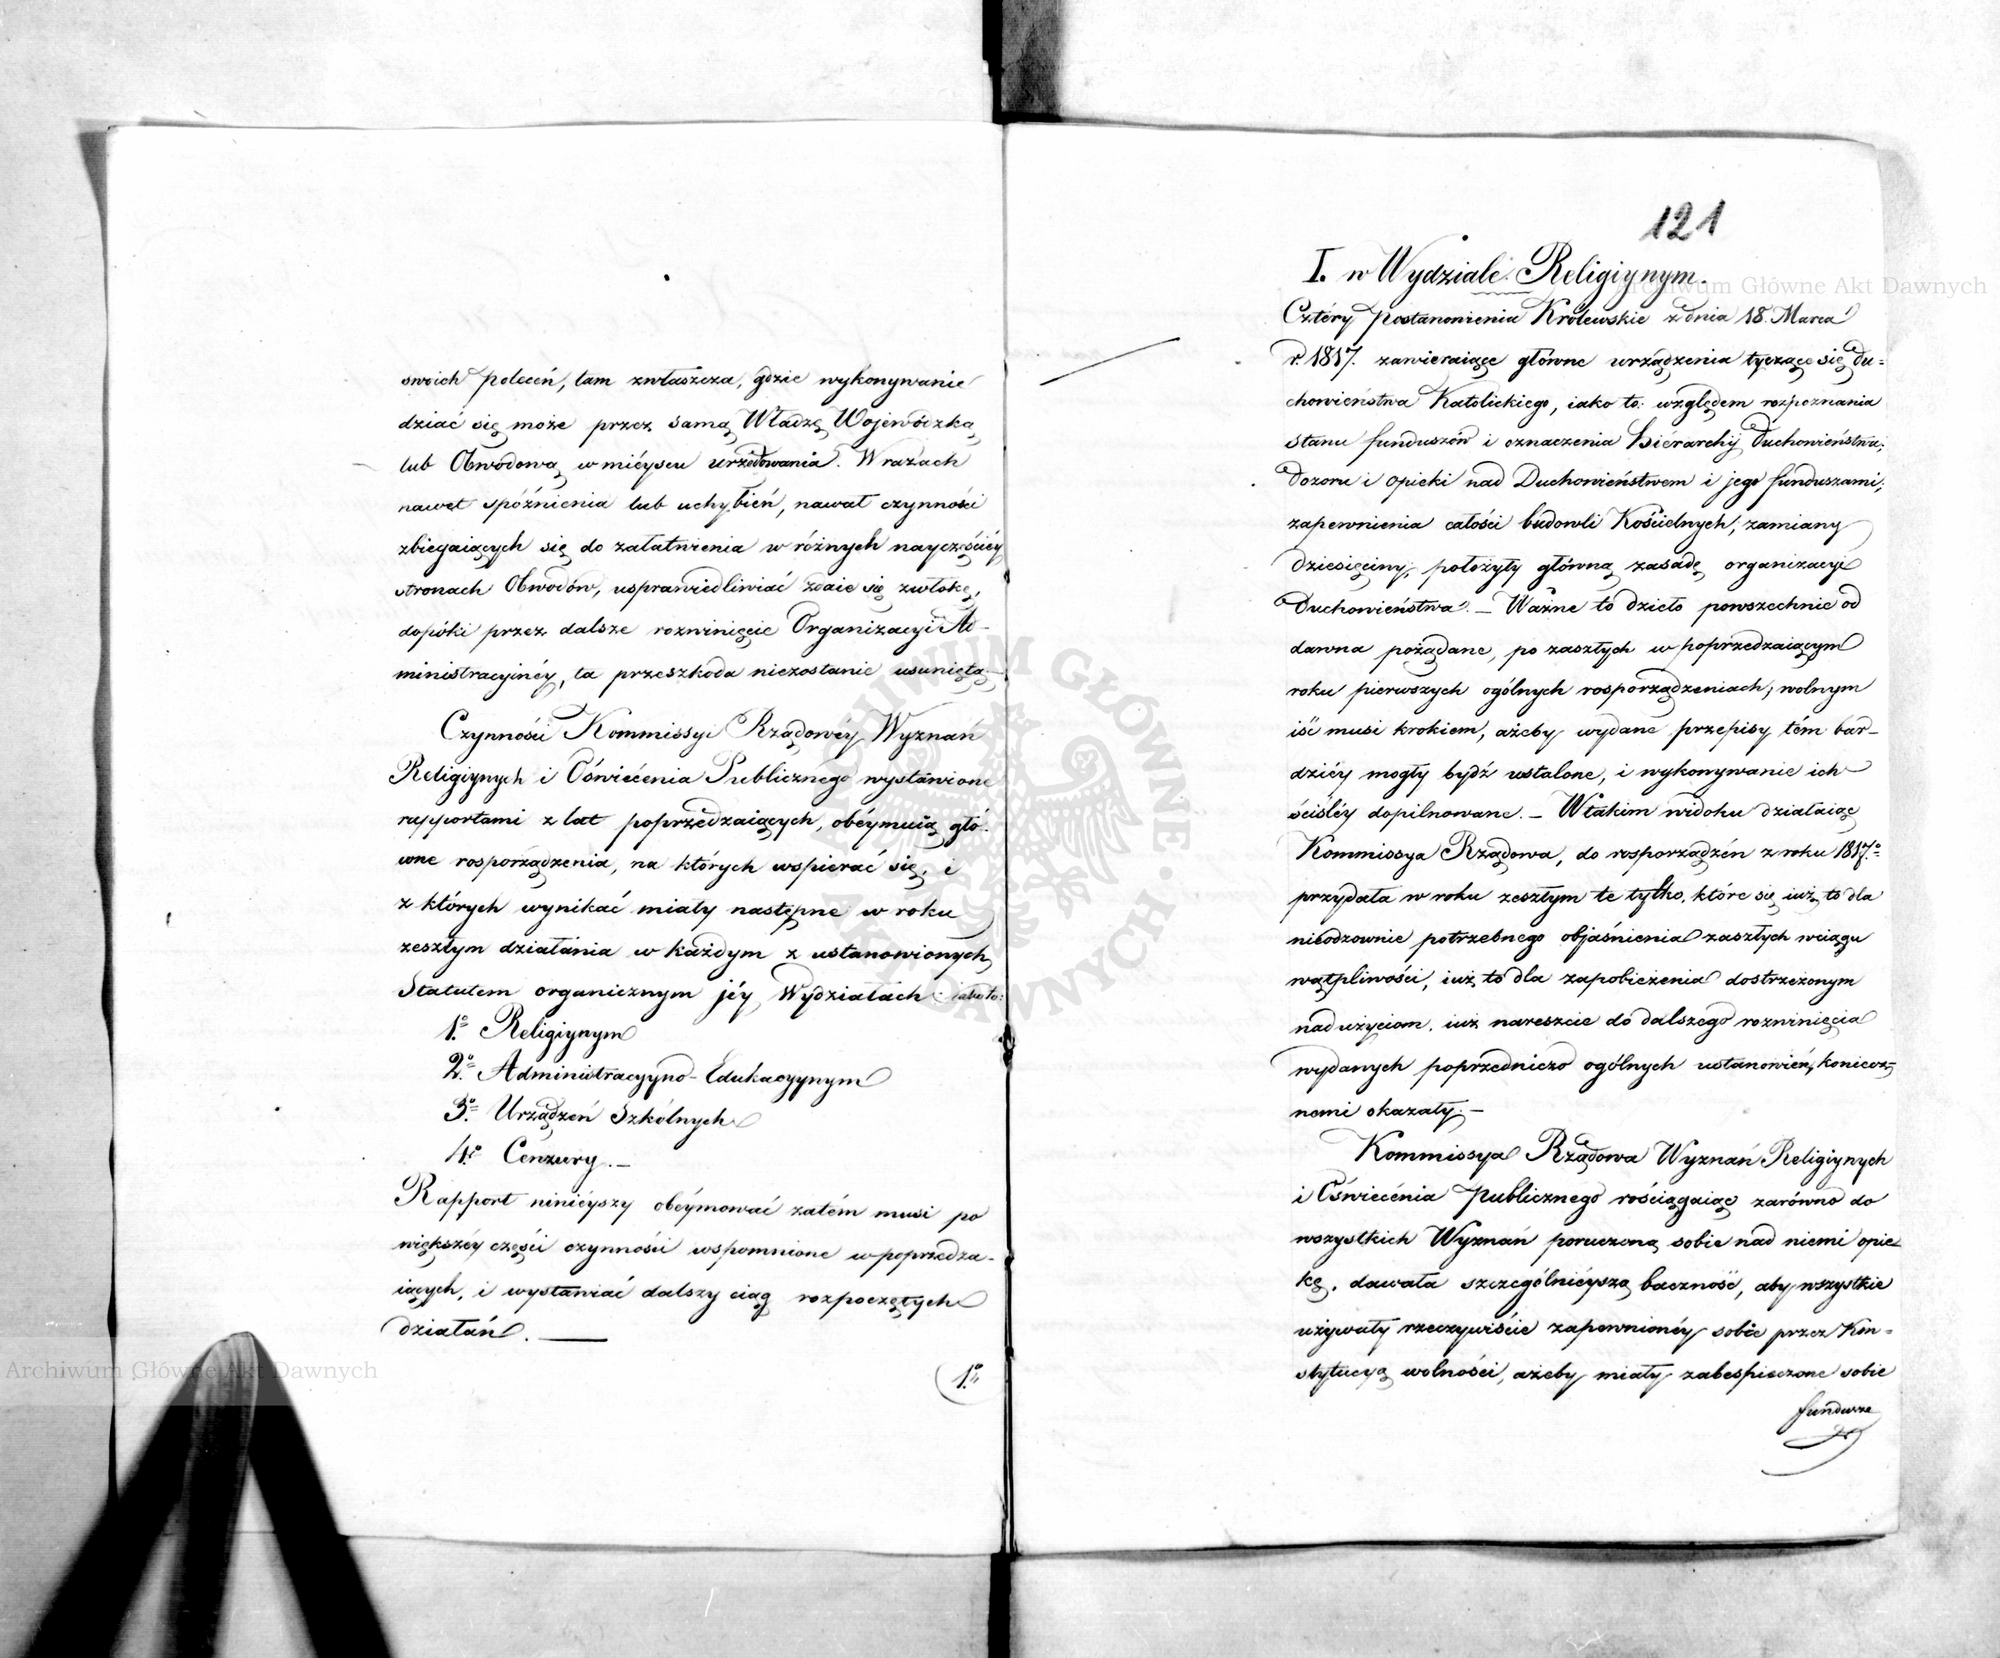 swoich poleceń, tam zwłaszcza, gdzie wykonywanie
dziać się może przez samą Władzę Wojewódzką,
lub Obwodową w miéyscu urzędowania. W razach
nawet spóźnienia lub uchybień, nawał czynności
zbiegaiących się do załatwienia w różnych nayczęściéy
stronach Obwodów, usprawiedliwiać zdaie się zwłokę,
dopóki przez dalsze rozwinięcie Organizacyi Ad-
ministracyinéy, ta przeszkoda niezostanie usuniętą.—
Czynności Kommissyi Rządowéy Wyznań
Religiynych i Oświécenia Publicznego wystawione
rapportami z lat poprzedzaiących, obéymuią głó-
wne rosporządzenia, na których wspierać się, i
z których wynikać miały następne w roku
zeszłym działania w każdym z ustanowionych
Statutem organicznym jéy Wydziałach iako to:
1º Religiynym
2º Administracyyno-Edukacyynym
3º Urządzeń Szkólnych
4º Cenzury.—
Rapport niniéyszy obéymować zatém musi po
większéy części czynności wspomnione w poprzedza-
iących, i wystawiać dalszy ciąg rozpoczętych
działań.—
1º
121
I. w Wydziale Religiynym.
Cztéry postanowienia Królewskie z dnia 18. Marca
r. 1817. zawieraiące główne urządzenia tyczące się Du=
chowieństwa Katolickiego, iako to: względem rozpoznania
stanu funduszów i oznaczenia Hiérarchij Duchowieństwa;
dozoru i opieki nad Duchowieństwem i jego funduszami;
zapewnienia całości budowli Kościelnych; zamiany
dziesięciny; położyły główną zasadę organizacyi
Duchowieństwa.— Ważne to dzieło powszechnie od
dawna pożądane, po zaszłych w poprzedzaiącym
roku pierwszych ogólnych rosporządzeniach, wolnym
iść musi krokiem, ażeby wydane przepisy tém bar-
dziéy mogły bydź ustalone, i wykonywanie ich
ściśléy dopilnowane.— W takim widoku działaiąc
Kommissya Rządowa, do rosporządzeń z roku 1817º
przydała w roku zeszłym te tylko, które się iuż to dla
nieodzownie potrzebnego objaśnienia zaszłych w ciągu
wątpliwości, iuż to dla zapobieżenia dostrzeżonym
nadużyciom, iuż nareszcie do dalszego rozwinięcia
wydanych poprzedniczo ogólnych ustanowień, koniecz-
nemi okazały.—
Kommissya Rządowa Wyznań Religiynych
i Oświecénia Publicznego rościągaiąc zarówno do
wszystkich Wyznań poruczoną sobie nad niemi opie-
kę, dawała szczególniéyszą baczność, aby wszystkie
używały rzeczywiście zapewnionéy sobie przez Kon=
stytucyą wolności, ażeby miały zabespieczone sobie
fundusze
Archiwum Główne Akt Dawnych
Archiwum Główne Akt Dawnych
ARCHIWUM GŁÓWNE AKT DAWNYCH